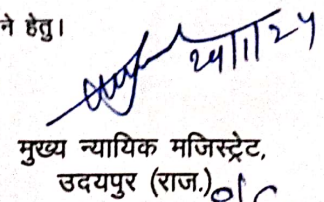 ने हेतु।
24/1/24
मुख्य न्यायिक मजिस्ट्रेट,
उदयपुर (राज.)